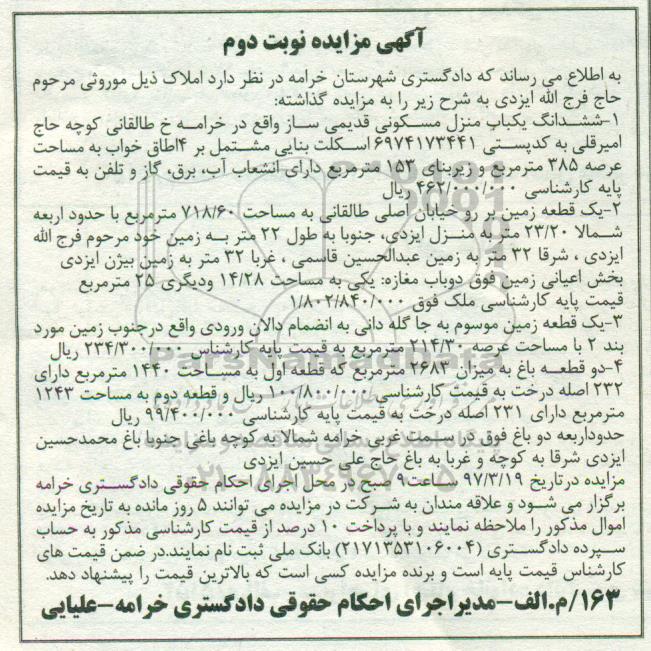 آگهی مزایده نوبت دوم
به اطلاع می رساند که دادگستری شهرستان خرامه در نظر دارد املاک ذیل موروثی مرحوم
حاج فرج الله ایزدی به شرح زیر را به مزایده گذاشته:
۱-ششدانگ یکباب منزل مسکونی قدیمی ساز واقع در خرامه خ طالقانی کوچه حاج
امیرقلی به کدپستی ۶۹۷۴۱۷۳۴۴۱ اسکلت بنایی مشتمل بر ۴اطاق خواب به مساحت
عرصه ۳۸۵ مترمربع و زیربنای ۱۵۳ مترمربع دارای انشعاب آب، برق، گاز و تلفن به قیمت
پایه کارشناسی ۴۶۲/۰۰۰/۰۰۰ ریال
۲-یک قطعه زمین بر رو خیابان اصلی طالقانی به مساحت ۷۱۸/۶۰ مترمربع با حدود اربعه
شمالا ۲۳/۲۰ متر به منزل ایزدی، جنوبا به طول ۲۲ متر به زمین خود مرحوم فرج الله
ایزدی ، شرقا ۳۲ متر به زمین عبدالحسین قاسمی ، غربا ۳۲ متر به زمین بیژن ایزدی
بخش اعیانی زمین فوق دوباب مغازه: یکی به مساحت ۱۴/۲۸ ودیگری ۲۵ مترمربع
قیمت پایه کارشناسی ملک فوق ۱/۸۰۲/۸۴۰/۰۰۰
۳-یک قطعه زمین موسوم به جا گله دانی به انضمام دالان ورودی واقع درجنوب زمین مورد
بند ۲ با مساحت عرصه ۲۱۴/۳۰ مترمربع به قیمت پایه کارشناسی ۲۳۴/۳۰۰/۰۰۰ ریال
۴-دو قطعه باغ به میزان ۲۶۸۳ مترمربع که قطعه اول به مساحت ۱۴۴۰ مترمربع دارای
۲۳۲ اصله درخت به قیمت کارشناسی ۱۰۰/۸۰۰/۰۰۰ ریال و قطعه دوم به مساحت ۱۲۴۳
مترمربع دارای ۲۳۱ اصله درخت به قیمت پایه کارشناسی ۹۹/۴۰۰/۰۰۰ ریال
حدوداربعه دو باغ فوق در سمت غربی خرامه شمالا به کوچه باغی ، جنوبا باغ محمدحسین
ایزدی شرقا به کوچه و غربا به باغ حاج علی حسین ایزدی
مزایده درتاریخ ۹۷/۳/۱۹ ساعت۹ صبح در محل اجرای احکام حقوقی دادگستری خرامه
برگزار می شود و علاقه مندان به شرکت در مزایده می توانند ۵ روز مانده به تاریخ مزایده
اموال مذکور را ملاحظه نمایند و با پرداخت ۱۰ درصد از قیمت کارشناسی مذکور به حساب
سپرده دادگستری (۲۱۷۱۳۵۳۱۰۶۰۰۴) بانک ملی ثبت نام نمایند.در ضمن قیمت های
کارشناس قیمت پایه است و برنده مزایده کسی است که بالاترین قیمت را پیشنهاد دهد.
۱۶۳/م.الف-مدیراجرای احکام حقوقی دادگستری خرامه-علیایی